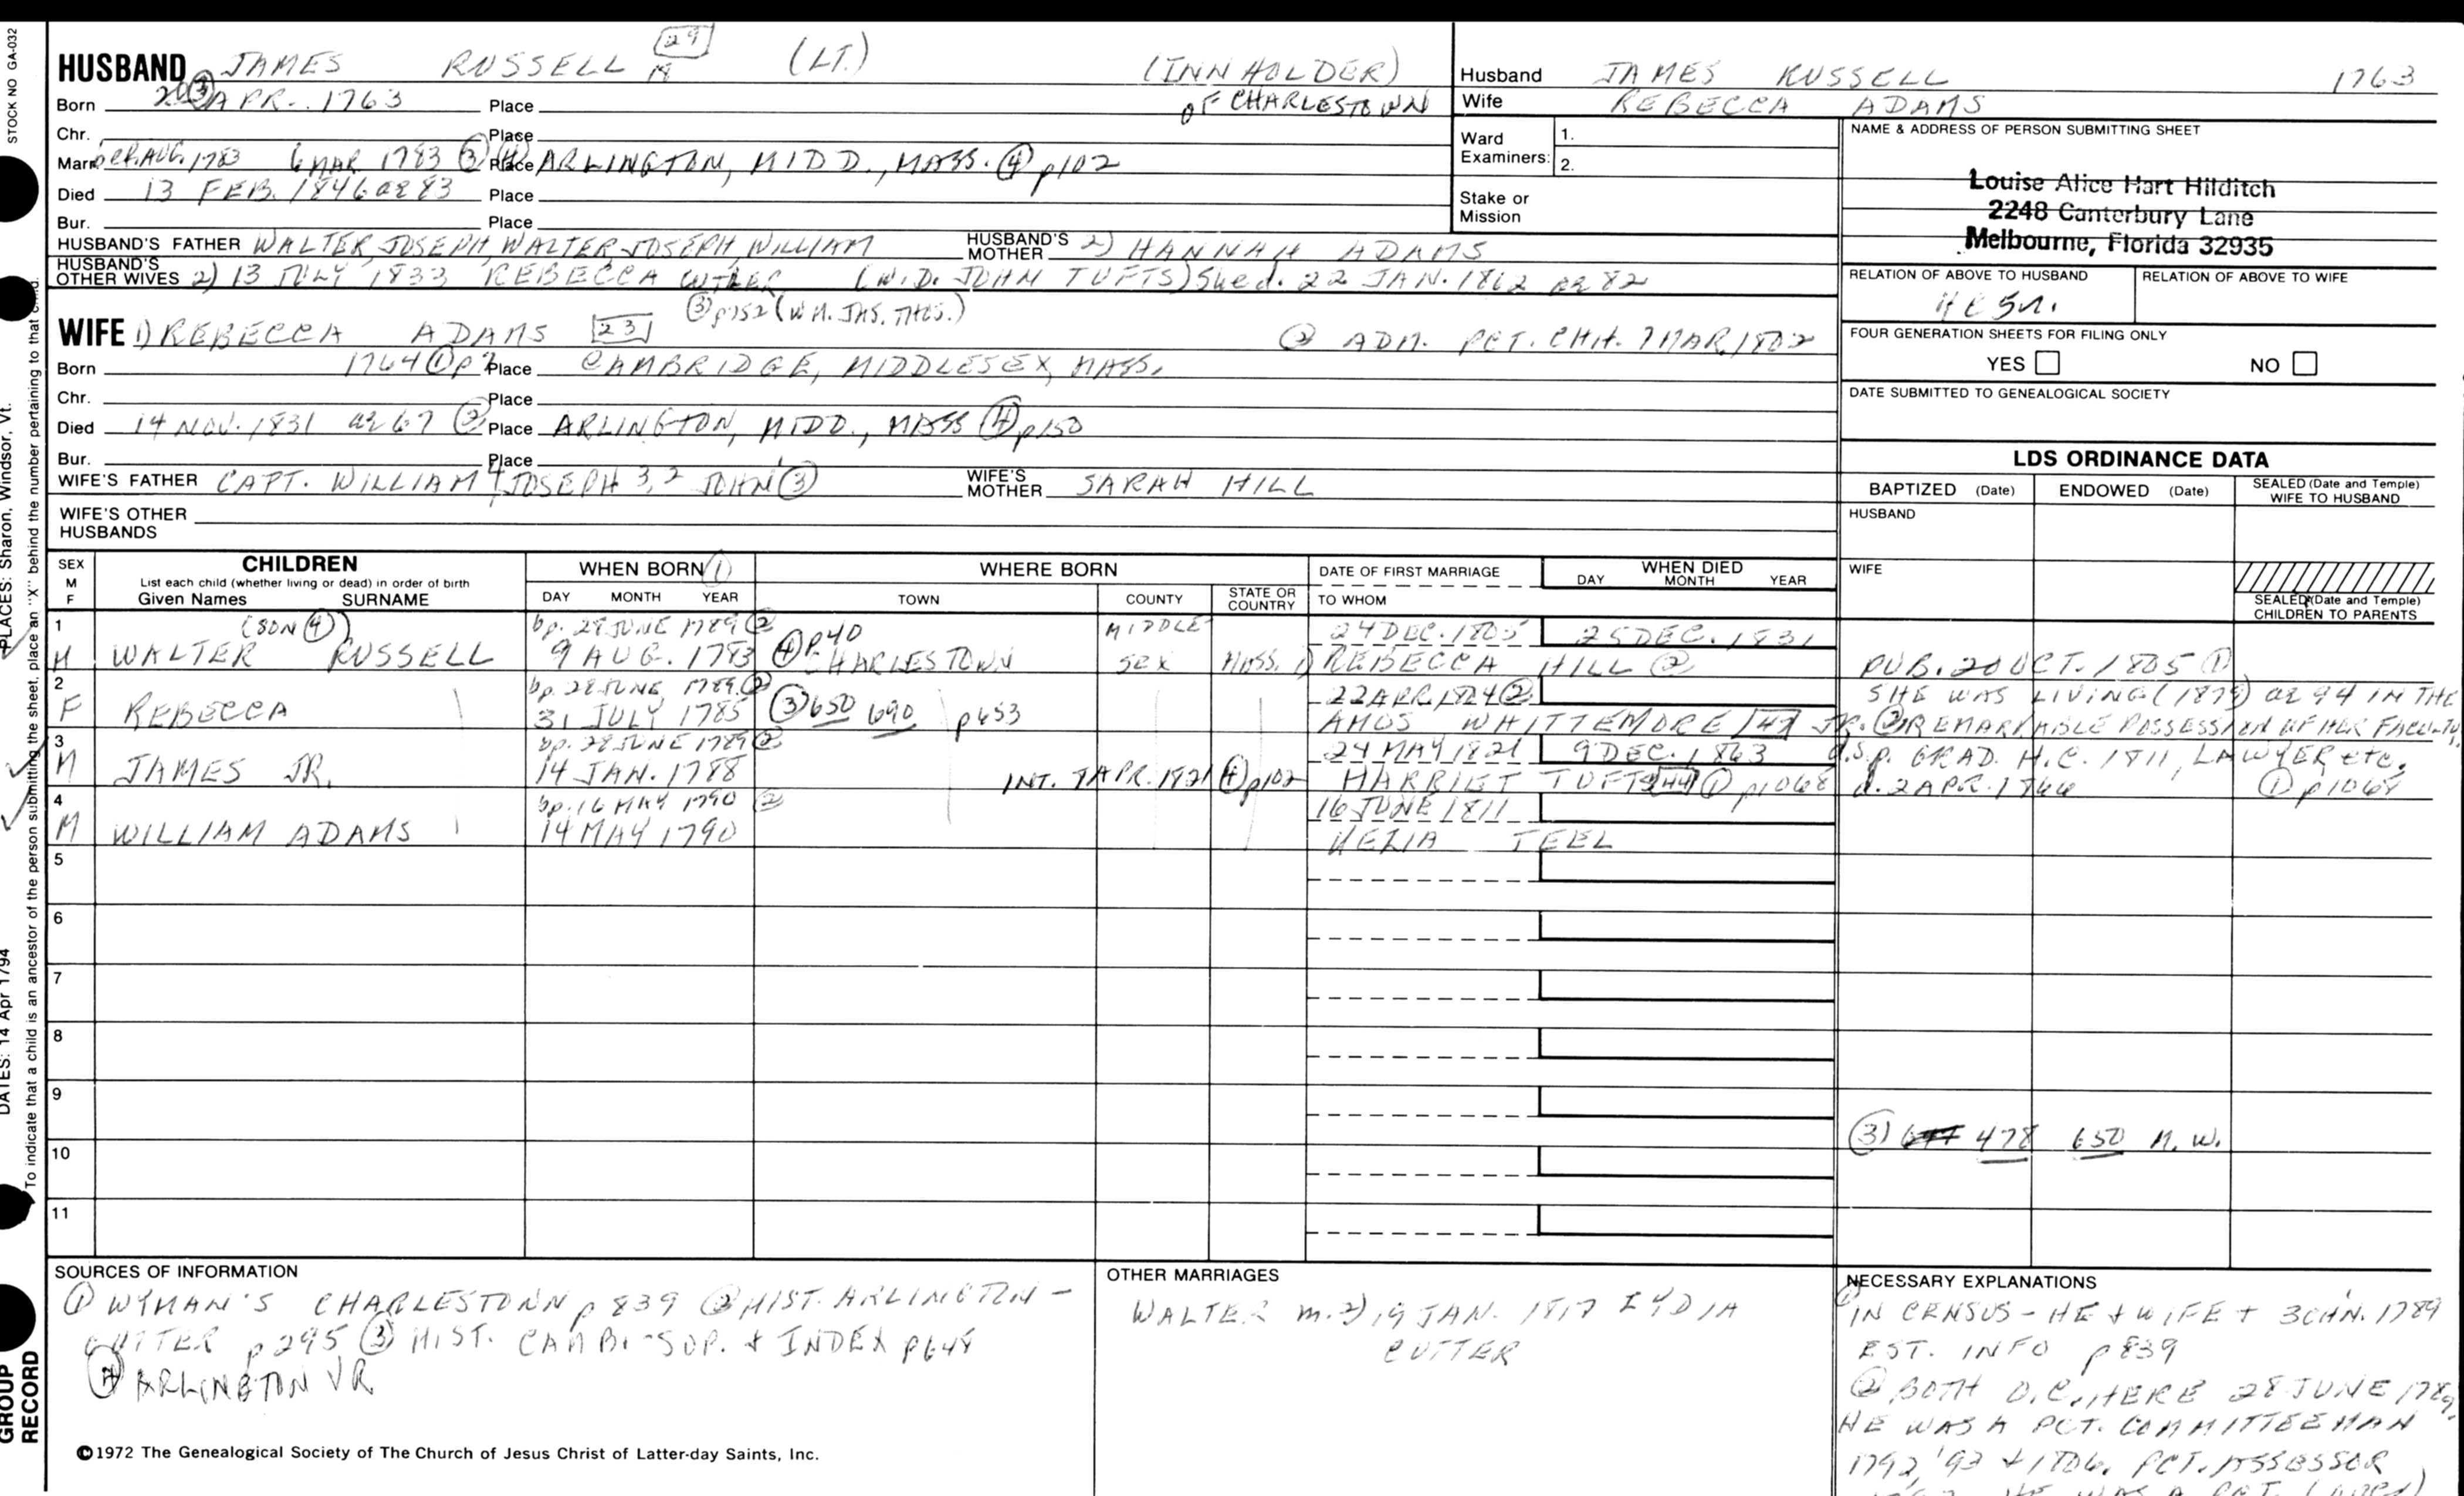 STOCK NO GA-032
HUSBAND JAMES RUSSELL 29 (LT.) (INNHOLDER)
Born 20 ③ APR. 1763 Place OF CHARLESTOWN
Chr. Place
Marr. AUG. 1783 6 MAR 1783 ③ ④ Place ARLINGTON, MIDD., MASS. ④ p102
Died 13 FEB. 1846 ae 83 Place
Bur. Place
HUSBAND'S FATHER WALTER, JOSEPH, WALTER, JOSEPH, WILLIAM HUSBAND'S MOTHER 2) HANNAH ADAMS
HUSBAND'S OTHER WIVES 2) 13 JULY 1833 REBECCA (W.D. JOHN TUFTS) She d. 22 JAN. 1862 ae 82
③ p752 (WM. JAS. THOS.)
WIFE 1) REBECCA ADAMS 23 ② ADM. PCT. CHH. 7 MAR. 1802
Born 1764 ① p2 Place CAMBRIDGE, MIDDLESEX, MASS.
Chr. Place
Died 14 NOV. 1831 ae 67 ② Place ARLINGTON, MIDD., MASS ④ p150
Bur. Place
WIFE'S FATHER CAPT. WILLIAM 4 JOSEPH 3,2 JOHN ③ WIFE'S MOTHER SARAH HILL
WIFE'S OTHER HUSBANDS
Husband JAMES RUSSELL 1763
Wife REBECCA ADAMS
Ward Examiners: 1.
2.
Stake or Mission
NAME & ADDRESS OF PERSON SUBMITTING SHEET
Louise Alice Hart Hilditch
2248 Canterbury Lane
Melbourne, Florida 32935
RELATION OF ABOVE TO HUSBAND RELATION OF ABOVE TO WIFE
FOUR GENERATION SHEETS FOR FILING ONLY
YES NO
DATE SUBMITTED TO GENEALOGICAL SOCIETY
LDS ORDINANCE DATA
BAPTIZED (Date) ENDOWED (Date) SEALED (Date and Temple) WIFE TO HUSBAND
HUSBAND
WIFE
SEALED (Date and Temple) CHILDREN TO PARENTS
SEX M F CHILDREN WHEN BORN ① WHERE BORN DATE OF FIRST MARRIAGE WHEN DIED
List each child (whether living or dead) in order of birth
Given Names SURNAME DAY MONTH YEAR TOWN COUNTY STATE OR COUNTRY TO WHOM DAY MONTH YEAR
1 (SON ④) bp. 28 JUNE 1789 ② ④ p40 MIDDLE- 24 DEC. 1805 25 DEC. 1831
M WALTER RUSSELL 9 AUG. 1783 CHARLESTOWN SEX MASS. 1) REBECCA HILL ② PUB. 20 OCT. 1805 ①
2 bp. 28 JUNE 1789 ② 22 APR. 1824 ② SHE WAS LIVING (1879) ae 94 IN THE
F REBECCA 31 JULY 1785 ③ 650 690 p653 AMOS WHITTEMORE 47 JR. ② REMARKABLE POSSESSION OF HER
3 bp. 28 JUNE 1789 ② 24 MAY 1821 9 DEC. 1863 d.s.p. GRAD. H.C. 1811, LAWYER etc.
M JAMES JR. 14 JAN. 1788 INT. 7 APR. 1821 ④ p102 HARRIET TUFTS 44 ① p1068 d. 2 APR. ① p1068
4 bp. 16 MAY 1790 ② 16 JUNE 1811
M WILLIAM ADAMS 14 MAY 1790 KEZIA TEEL
5
6
7
8
9
10 ③ 478 650 M. W.
11
SOURCES OF INFORMATION
① WYMAN'S CHARLESTOWN p 839 ② HIST. ARLINGTON -
CUTTER p 295 ③ HIST. CAMB. - SUP. & INDEX p648
④ ARLINGTON VR
OTHER MARRIAGES
WALTER m. 2) 19 JAN. 1817 LYDIA
CUTTER
NECESSARY EXPLANATIONS
① IN CENSUS - HE + WIFE + 3 CHN. 1789
EST. INFO p 839
② BOTH O.C. HERE 28 JUNE 1789,
HE WAS A PCT. COMMITTEEMAN
1792, '93 + 1806. PCT. ASSESSOR
©1972 The Genealogical Society of The Church of Jesus Christ of Latter-day Saints, Inc.
To indicate that a child is an ancestor of the person submitting the sheet, place an "X" behind the number pertaining to that child.
PLACES: Sharon, Windsor, Vt.
DATES: 14 Apr 1794
GROUP RECORD